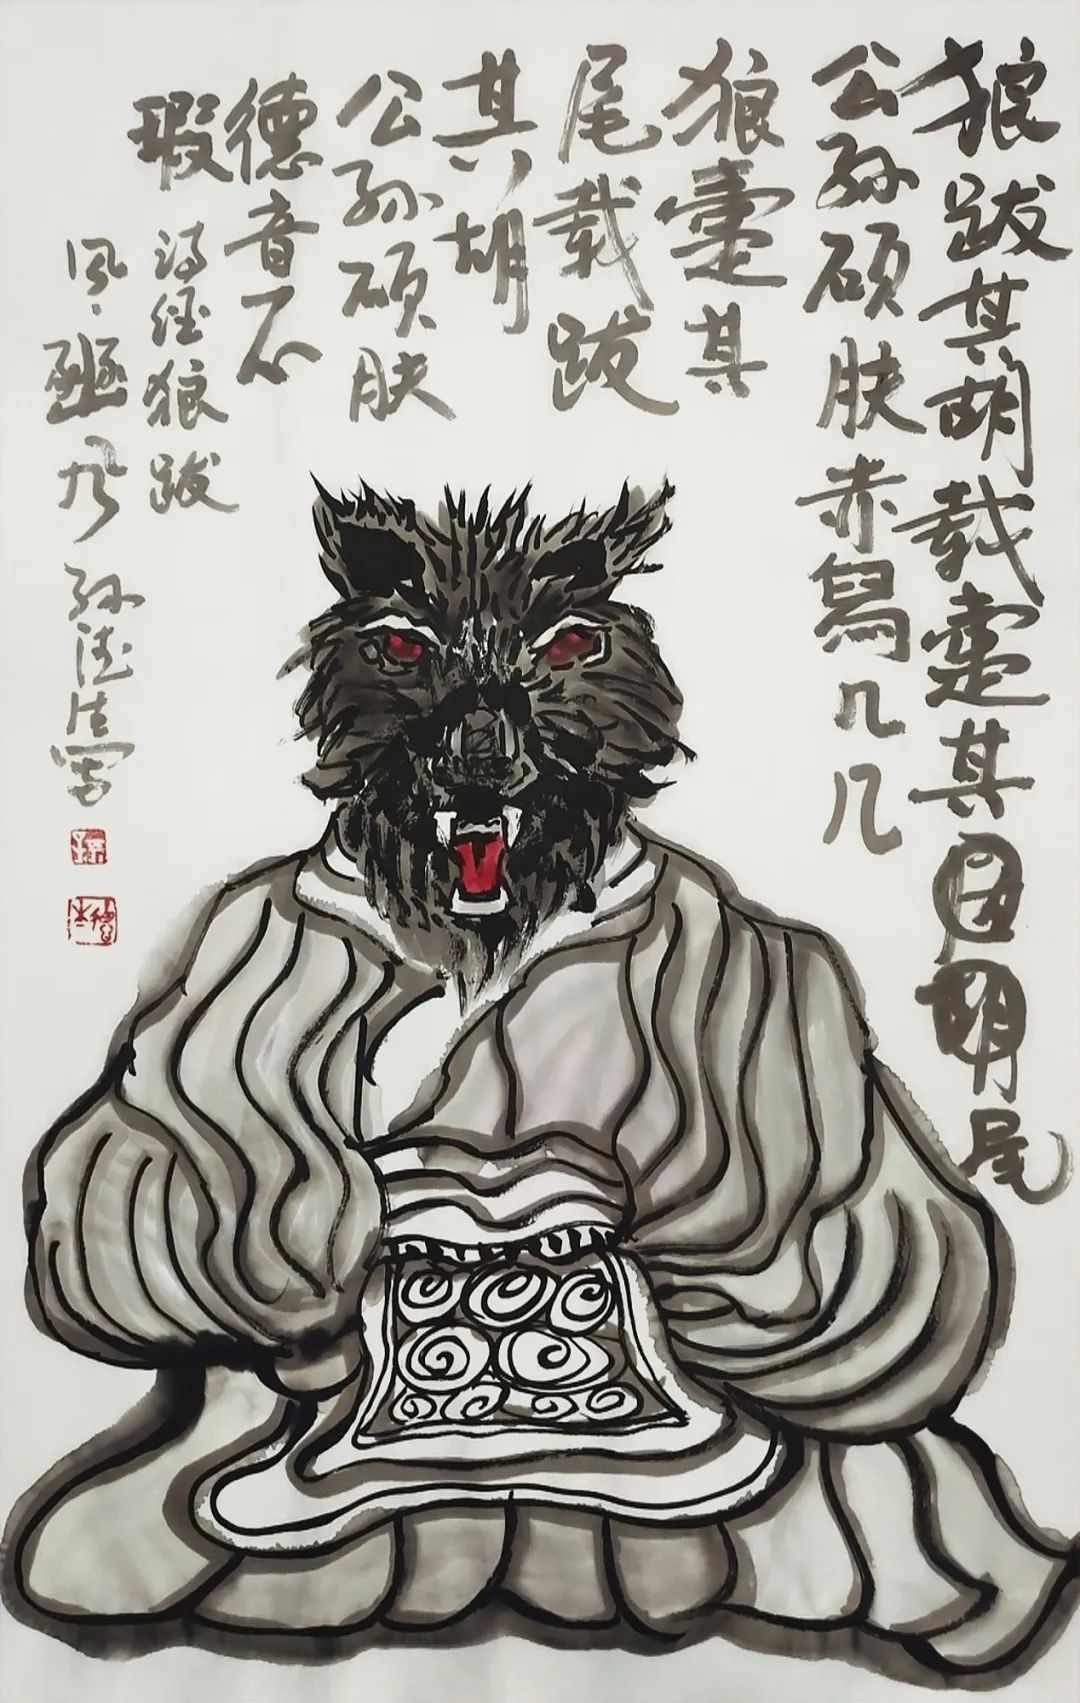 狼跋其胡载疐其尾
公孙硕肤赤舄几几
狼疐其
尾载跋
其胡
公孙硕肤
德音不
瑕
诗经狼跋
风·豳风 孙德生写